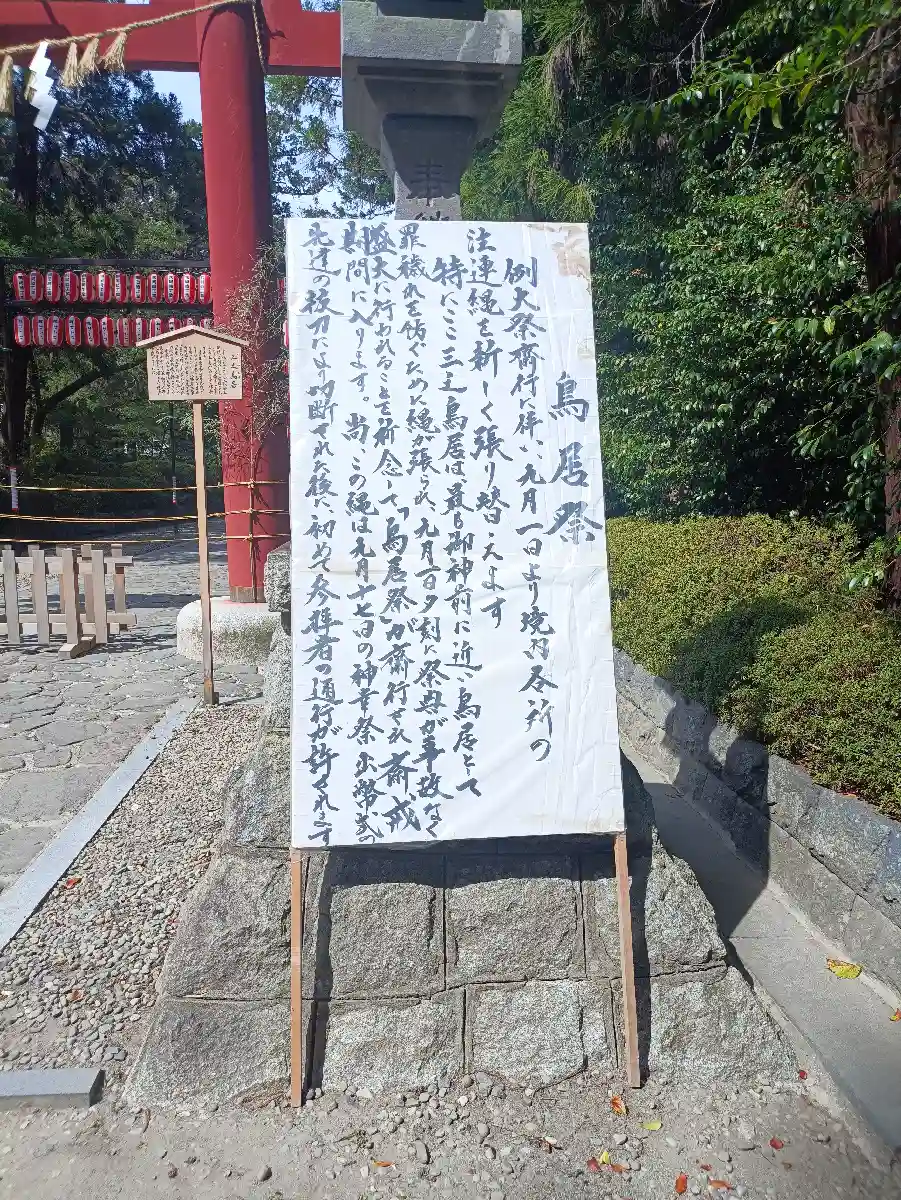 鳥居祭
例大祭斎行に伴い、九月一日より境内各所の
注連縄を新しく張り替えます
特にここ三之鳥居は、最も御神前に近い鳥居として
罪穢れを防ぐために縄が張られ、九月一日夕刻に祭典が事故なく
盛大に行われることを祈念して「鳥居祭」が斎行され斎戒
期間に入ります。尚、この縄は九月十七日の神幸祭出幣式の
先達の抜刀により断たれた後に初めて参拝者の通行が許されます
三之鳥居